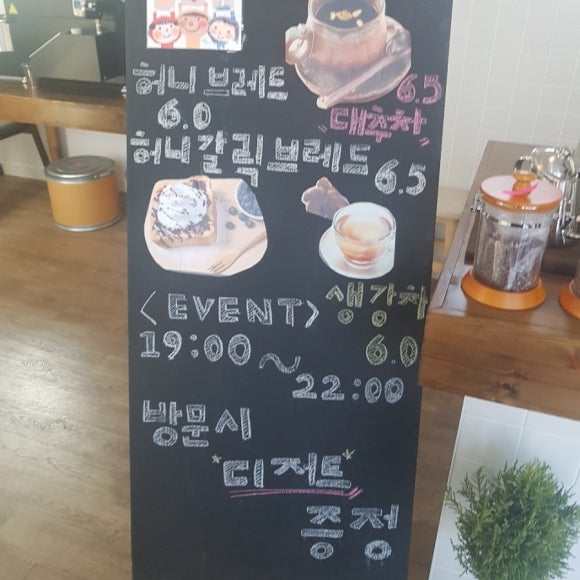 허니 브레트
6.0
6.5
"대추차"
허니 갈릭 브레드
6.5
<EVENT>
생강차
6.0
19:00 ~
22:00
방문시
*디저트*
증정